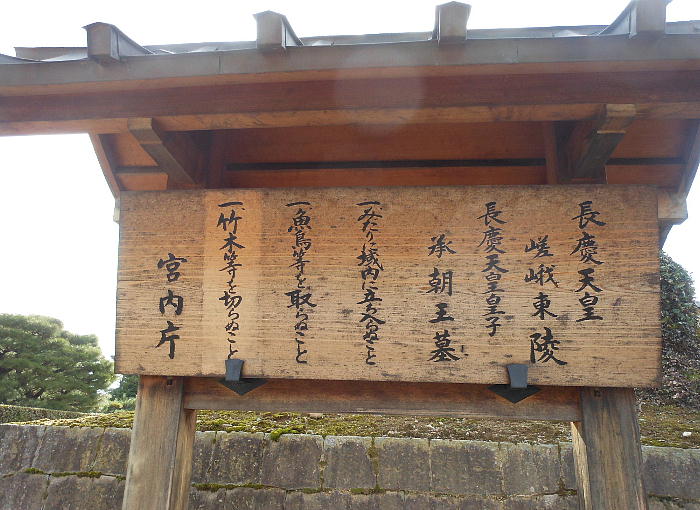 長慶天皇
嵯峨東陵
長慶天皇皇子
承朝王墓
一、みだりに域内に立ち入らぬこと
一、魚鳥等を取らぬこと
一、竹木等を切らぬこと
宮内庁